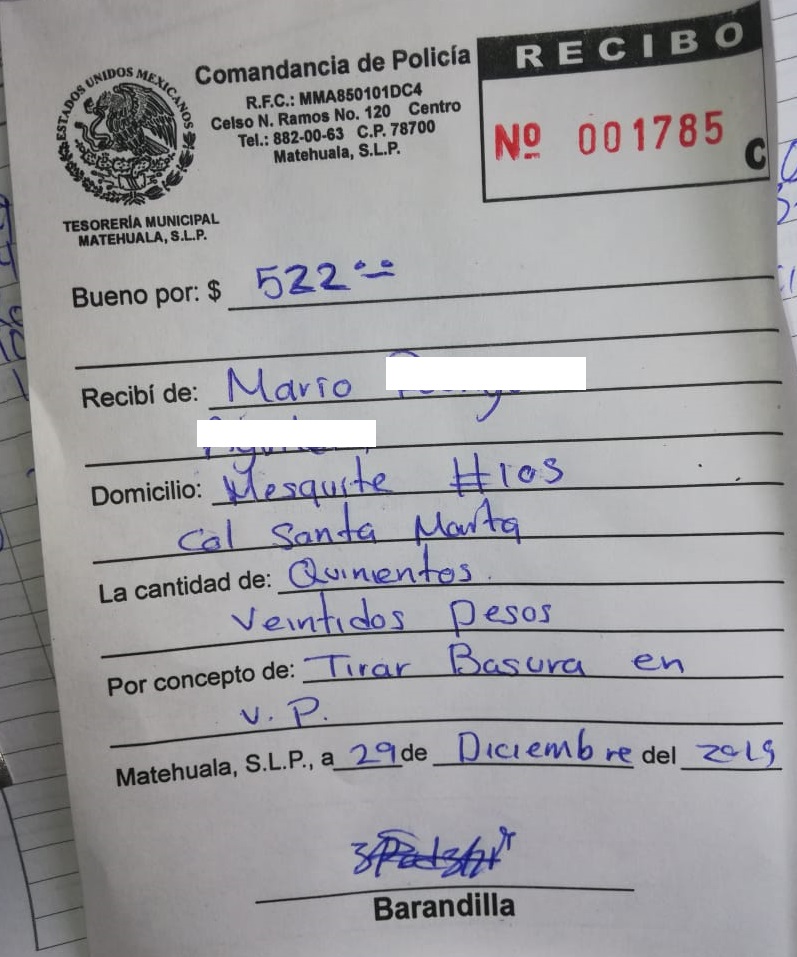 ESTADOS UNIDOS MEXICANOS
TESORERÍA MUNICIPAL
MATEHUALA, S.L.P.
Comandancia de Policía
R.F.C.: MMA850101DC4
Celso N. Ramos No. 120 Centro
Tel.: 882-00-63 C.P. 78700
Matehuala, S.L.P.
RECIBO
Nº 001785
C
Bueno por: $ 522.00
Recibí de: Mario
Domicilio: Mesquite #105
Col Santa Marta
La cantidad de: Quinientos
Veintidos Pesos
Por concepto de: Tirar Basura en
V. P.
Matehuala, S.L.P., a 29 de Diciembre del 2019
Barandilla